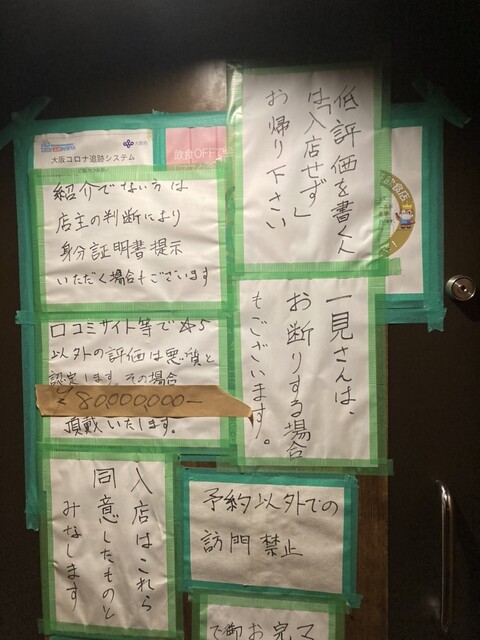 大阪コロナ追跡システム
飲食OFF
低評価を書く人
は「入店せず」
お帰り下さい
紹介でない方は
店主の判断により
身分証明書提示
いただく場合もございます
一見さんは、
お断りする場合
もございます。
口コミサイト等で☆5
以外の評価は悪質と
認定します。その場合
80,000,000-
頂戴いたします。
入店はこれら
同意したものと
みなします
予約以外での
訪問禁止